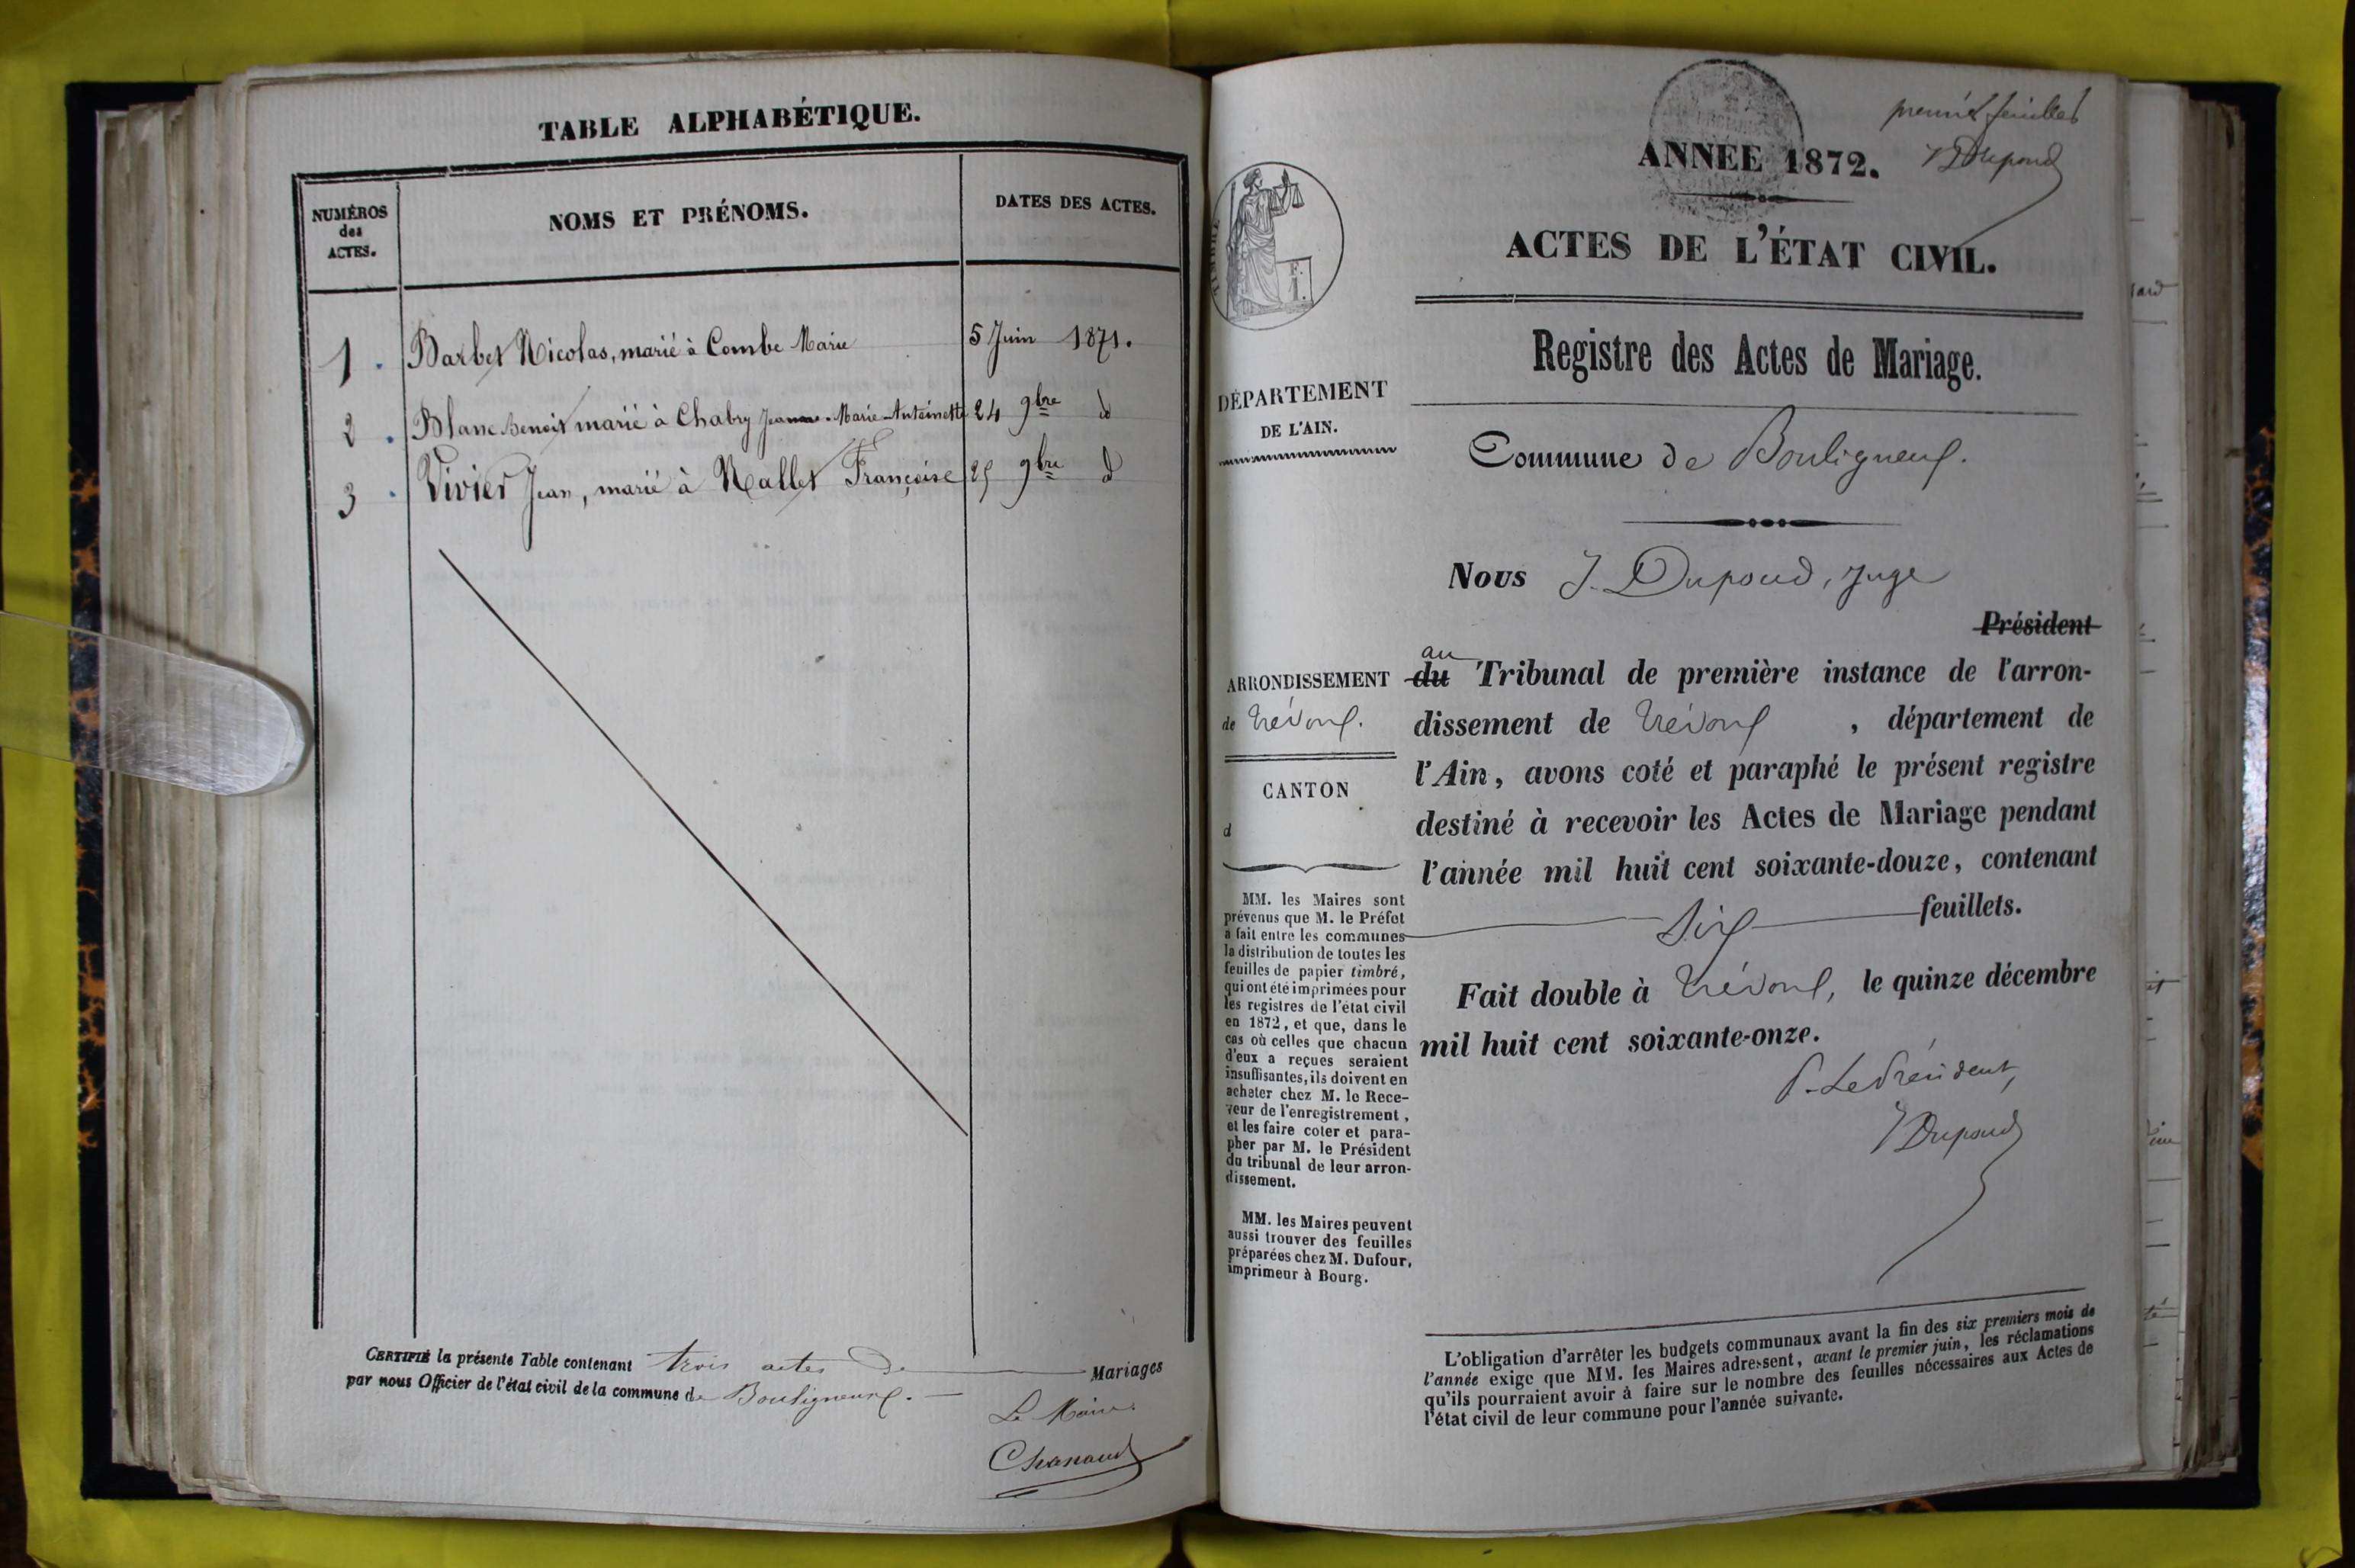 TABLE ALPHABÉTIQUE.
NUMÉROS
des
ACTES.
NOMS ET PRÉNOMS.
DATES DES ACTES.
1 Barbet Nicolas, marié à Combe Marie 5 Juin 1871.
2 Blanc Benoit marié à Chabry Jeanne-Marie-Antoinette 24 9bre d
3 Vivier Jean, marié à Nallet Françoise 25 9bre d
CERTIFIÉ la présente Table contenant trois actes de Mariages
par nous Officier de l'état civil de la commune de Bouligneux.
Le Maire
Chanaud
premier feuillet
JDupoud
ANNÉE 1872.
ACTES DE L'ÉTAT CIVIL.
Registre des Actes de Mariage.
TIMBRE
F.
I.
DÉPARTEMENT
DE L'AIN.
Commune de Bouligneux.
Nous J. Dupoud, Juge
Président
au
ARRONDISSEMENT
de Trévoux.
CANTON
d
du Tribunal de première instance de l'arron-
dissement de Trévoux, département de
l'Ain, avons coté et paraphé le présent registre
destiné à recevoir les Actes de Mariage pendant
l'année mil huit cent soixante-douze, contenant
Six feuillets.
Fait double à Trévoux, le quinze décembre
mil huit cent soixante-onze.
P. Le Président,
JDupoud
MM. les Maires sont
prévenus que M. le Préfet
a fait entre les communes
la distribution de toutes les
feuilles de papier timbré,
qui ont été imprimées pour
les registres de l'état civil
en 1872, et que, dans le
cas où celles que chacun
d'eux a reçues seraient
insuffisantes, ils doivent en
acheter chez M. le Rece-
veur de l'enregistrement,
et les faire coter et para-
pher par M. le Président
du tribunal de leur arron-
dissement.
MM. les Maires peuvent
aussi trouver des feuilles
préparées chez M. Dufour,
imprimeur à Bourg.
L'obligation d'arrêter les budgets communaux avant la fin des six premiers mois de
l'année exige que MM. les Maires adressent, avant le premier juin, les réclamations
qu'ils pourraient avoir à faire sur le nombre des feuilles nécessaires aux Actes de
l'état civil de leur commune pour l'année suivante.